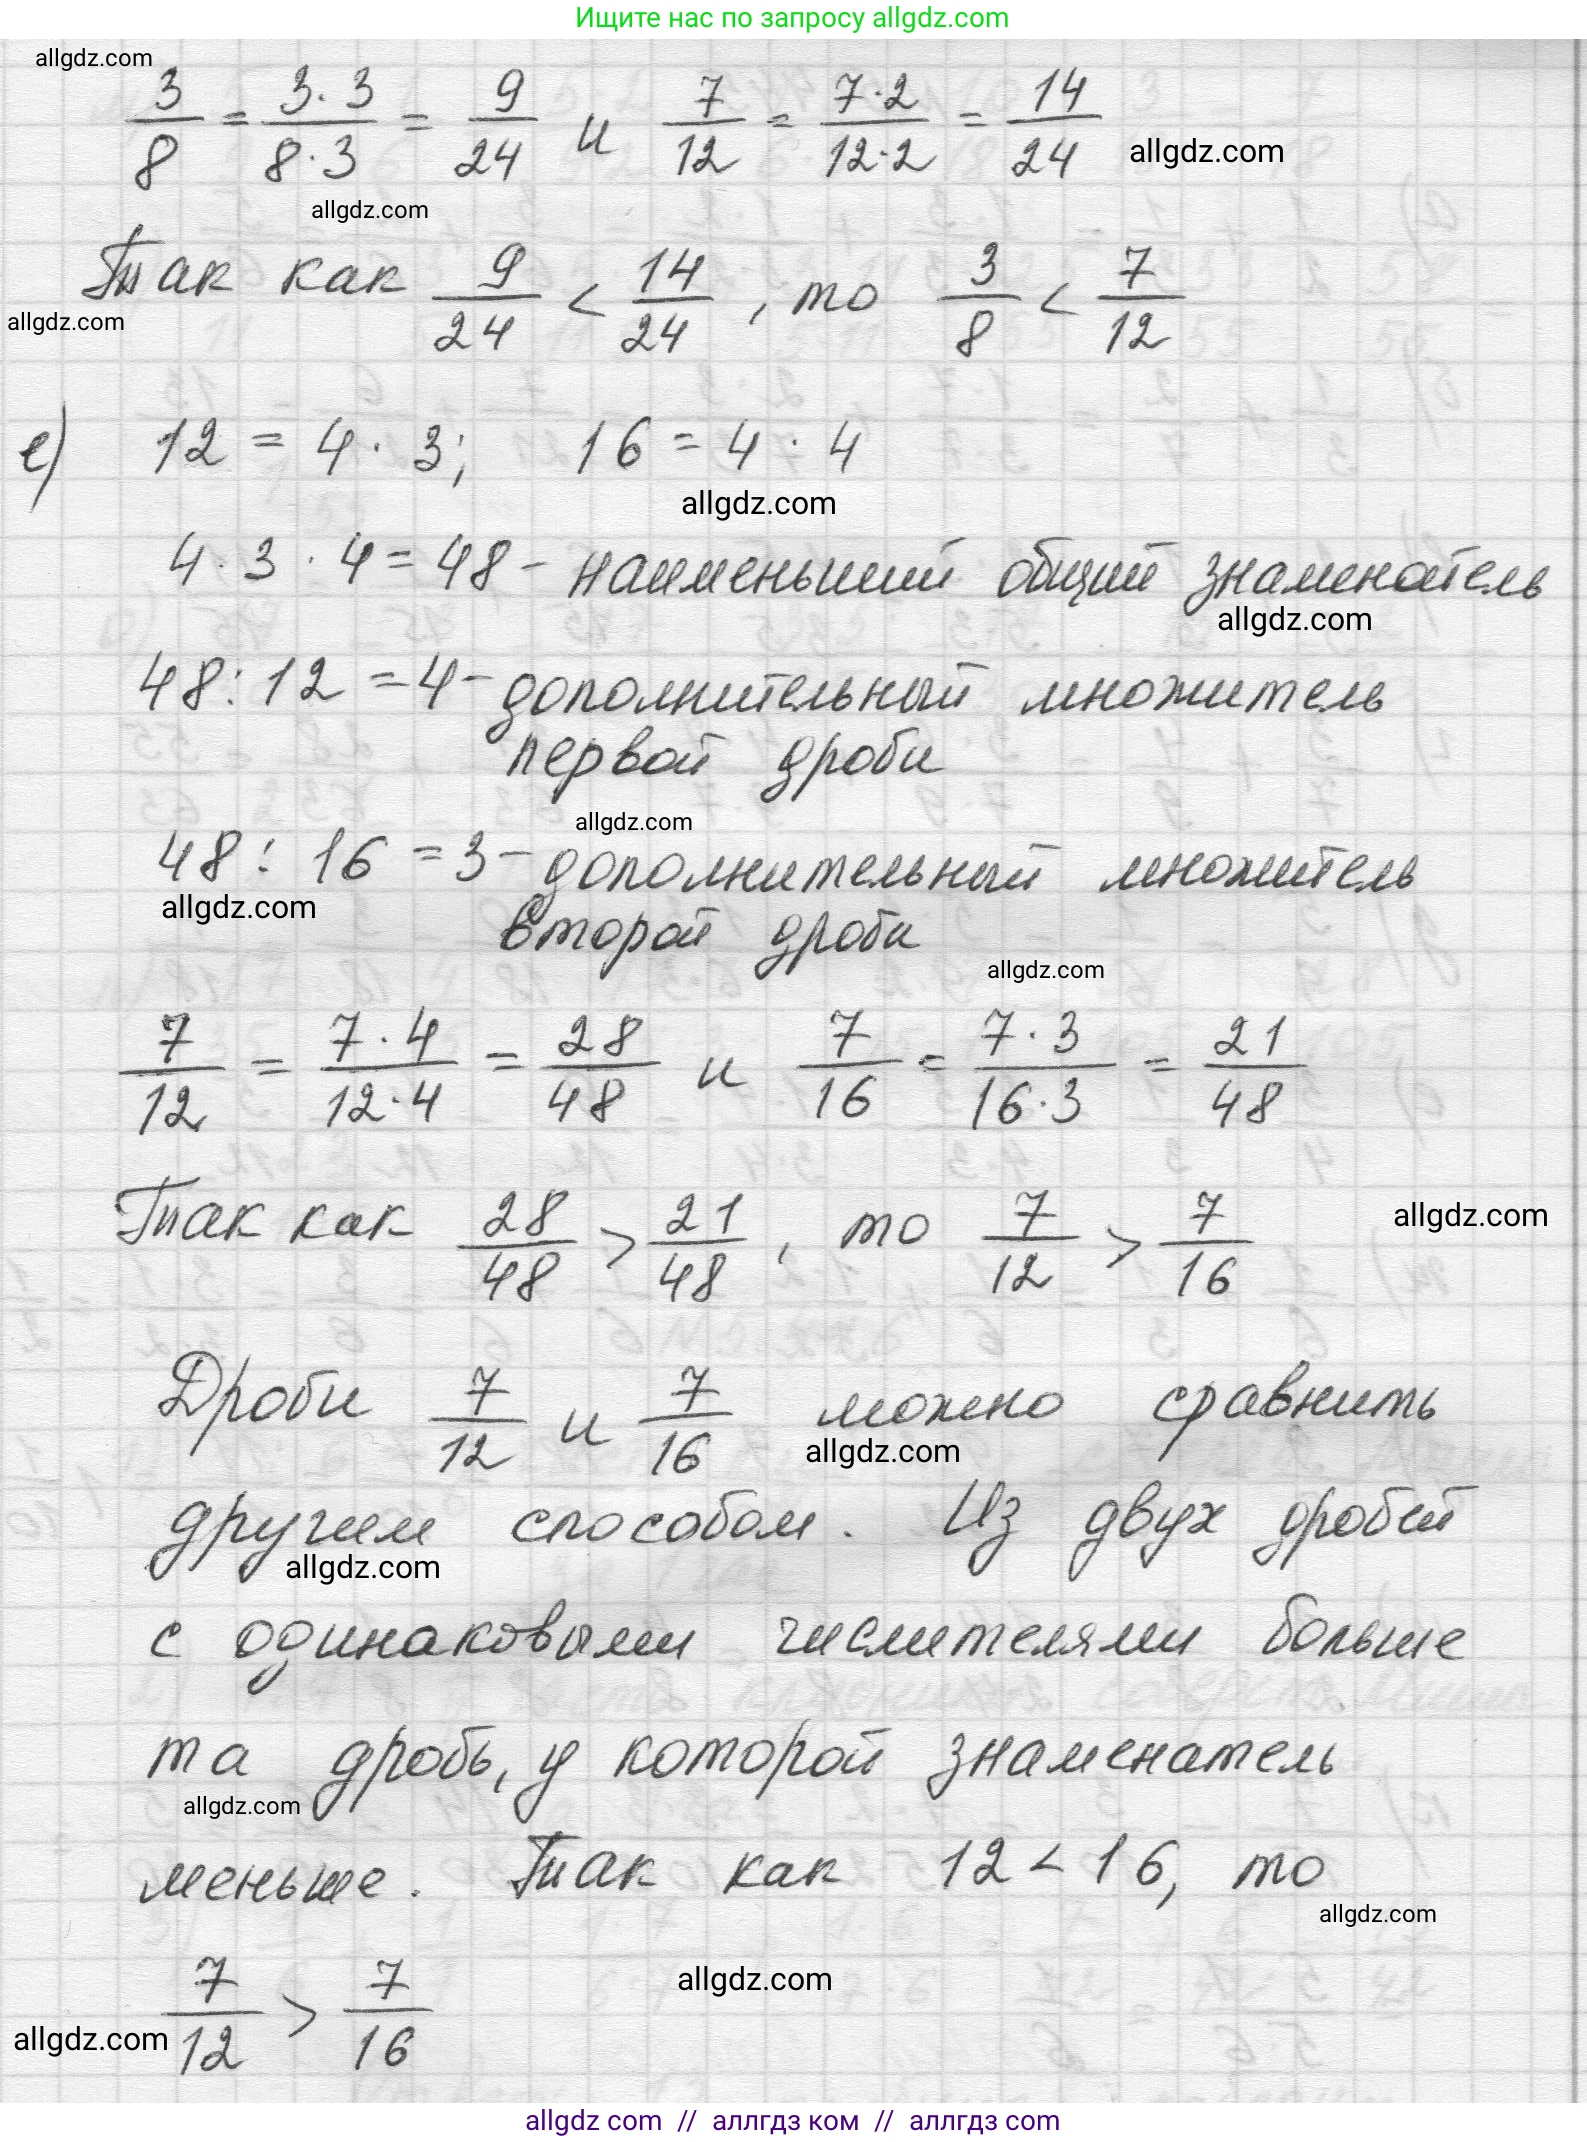 Ищите нас по запросу allgdz.com
allgdz.com
3/8 = 3·3/8·3 = 9/24 и 7/12 = 7·2/12·2 = 14/24 allgdz.com
allgdz.com
Так как 9/24 < 14/24, то 3/8 < 7/12
allgdz.com
е) 12 = 4 · 3; 16 = 4 · 4
allgdz.com
4 · 3 · 4 = 48 - наименьший общий знаменатель
allgdz.com
48 : 12 = 4 - дополнительный множитель
первой дроби
allgdz.com
48 : 16 = 3 - дополнительный множитель
allgdz.com
второй дроби
allgdz.com
7/12 = 7·4/12·4 = 28/48 и 7/16 = 7·3/16·3 = 21/48
Так как 28/48 > 21/48, то 7/12 > 7/16 allgdz.com
Дроби 7/12 и 7/16 можно сравнить
allgdz.com
другим способом. Из двух дробей
allgdz.com
с одинаковыми числителями больше
та дробь, у которой знаменатель
allgdz.com
меньше. Так как 12 < 16, то
allgdz.com
7/12 > 7/16 allgdz.com
allgdz.com
allgdz com // аллгдз ком // аллгдз com